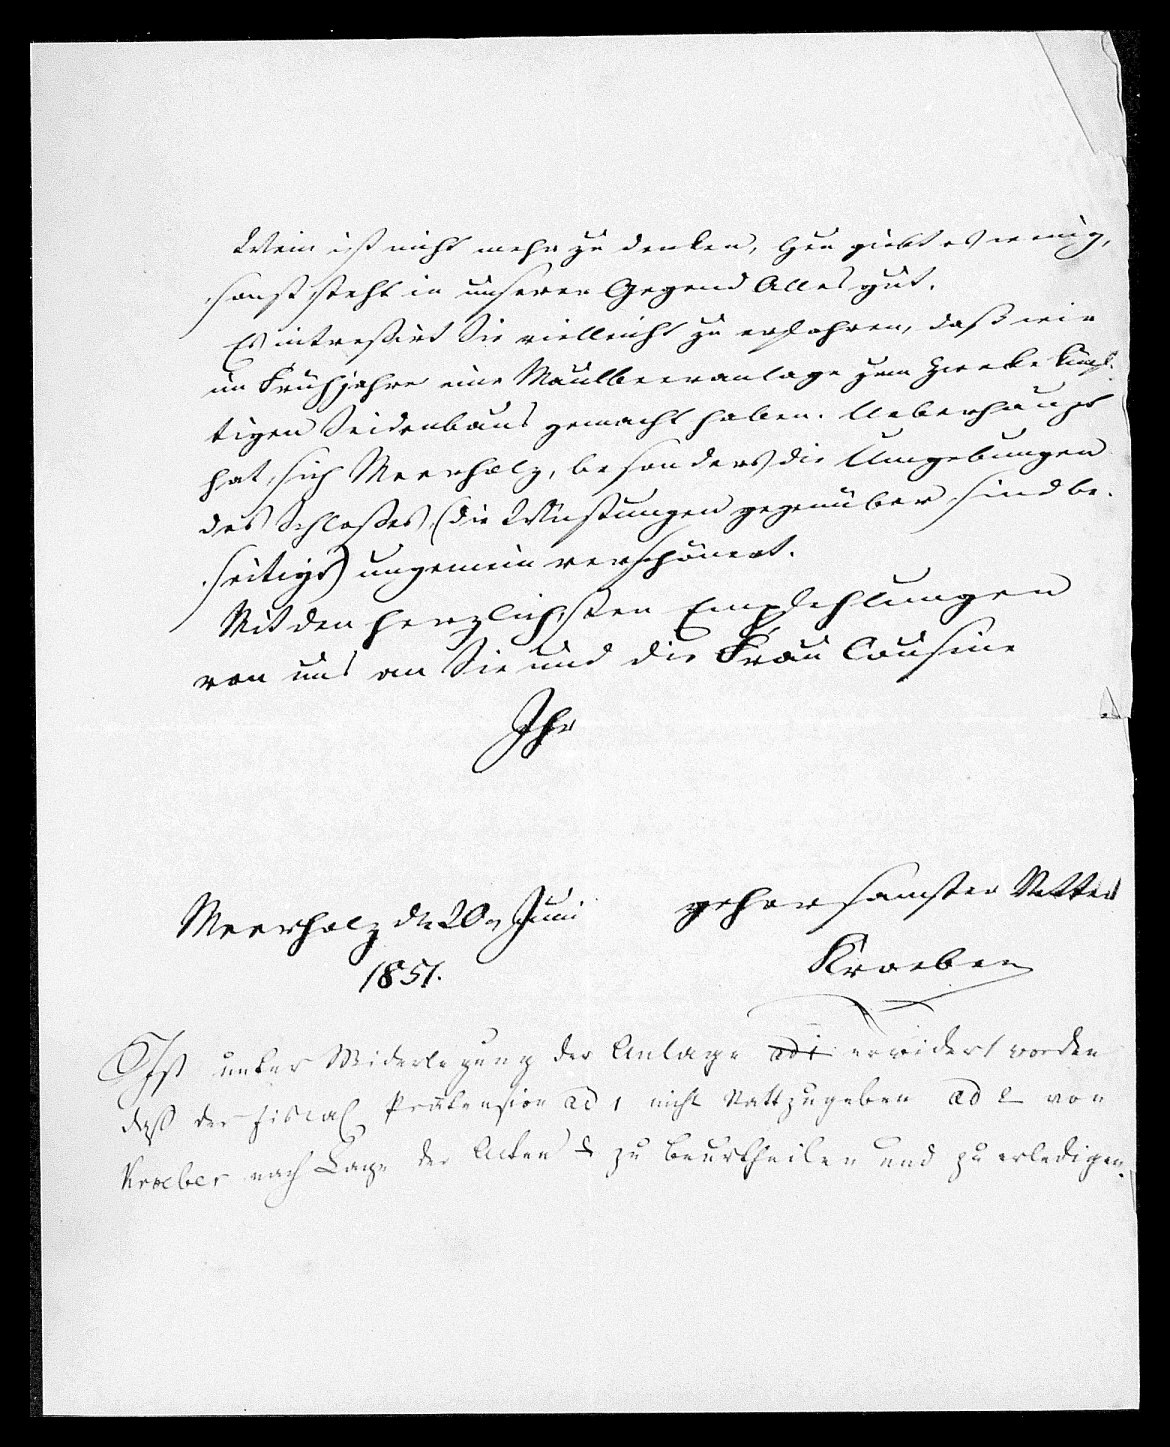 Wein ist nicht mehr zu denken, Heu giebt es wenig,
sonst steht in unserer Gegend Alles gut.
Es intressirt Sie vielleicht zu erfahren, daß wir
im Frühjahre eine Maulbeeranlage zum Zwecke künf-
tigen Seidenbaus gemacht haben. Ueberhaupt
hat sich Meerholz, besonders die Umgebungen
des Schloßes, (die Wüstungen gegenüber sind be-
seitigt) ungemein verschönert.
Mit den herzlichsten Empfehlungen
von uns an Sie und die Frau Cousine
Ihr
gehorsamster Vetter
Meerholz d. 20n Juni
Kroeber
1851.
Ist unter Widerlegung der Anlage ad 1 erwidert worden
daß der Fiscal Prätension ad 1 nicht stattzugeben ad 2 von
Kroeber nach Lage der Acten zu beurtheilen und zu erledigen.